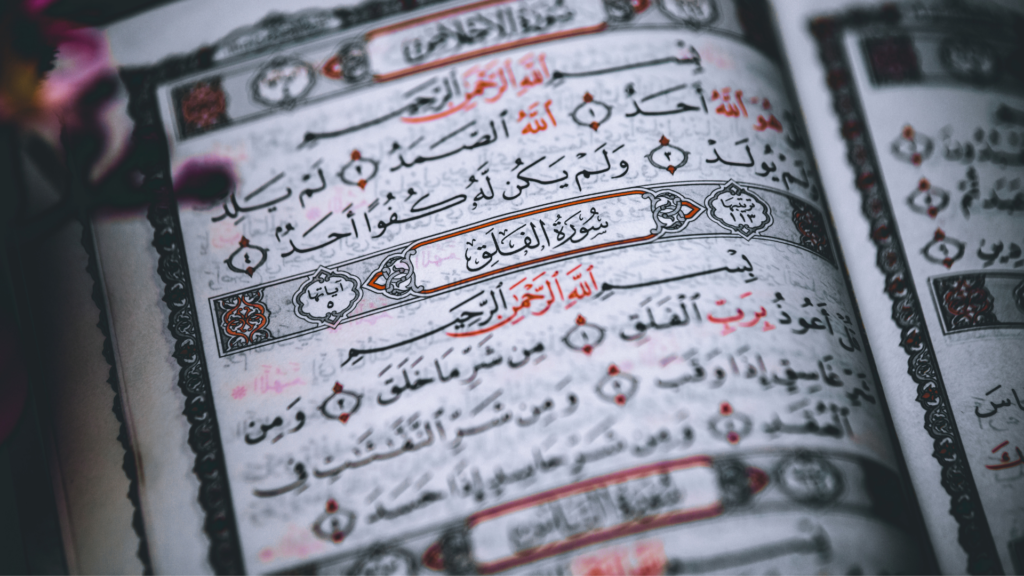 سُورَةُ الإِخْلَاصِ
بِسْمِ ٱللَّهِ ٱلرَّحْمَٰنِ ٱلرَّحِيمِ
هُوَ ٱللَّهُ أَحَدٌ ١ ٱللَّهُ ٱلصَّمَدُ ٢ لَمْ يَلِدْ
وَلَمْ يُولَدْ ٣ وَلَمْ يَكُن لَّهُۥ كُفُوًا أَحَدٌۢ ٤
ترتيبها ١١٣ سُورَةُ الْفَلَقِ آياتها ٥
بِسْمِ ٱللَّهِ ٱلرَّحْمَٰنِ ٱلرَّحِيمِ
قُلْ أَعُوذُ بِرَبِّ ٱلْفَلَقِ ١ مِن شَرِّ مَا خَلَقَ ٢ وَمِن
شَرِّ غَاسِقٍ إِذَا وَقَبَ ٣ وَمِن شَرِّ ٱلنَّفَّٰثَٰتِ فِي
ٱلْعُقَدِ ٤ وَمِن شَرِّ حَاسِدٍ إِذَا حَسَدَ ٥
سُورَةُ النَّاسِ